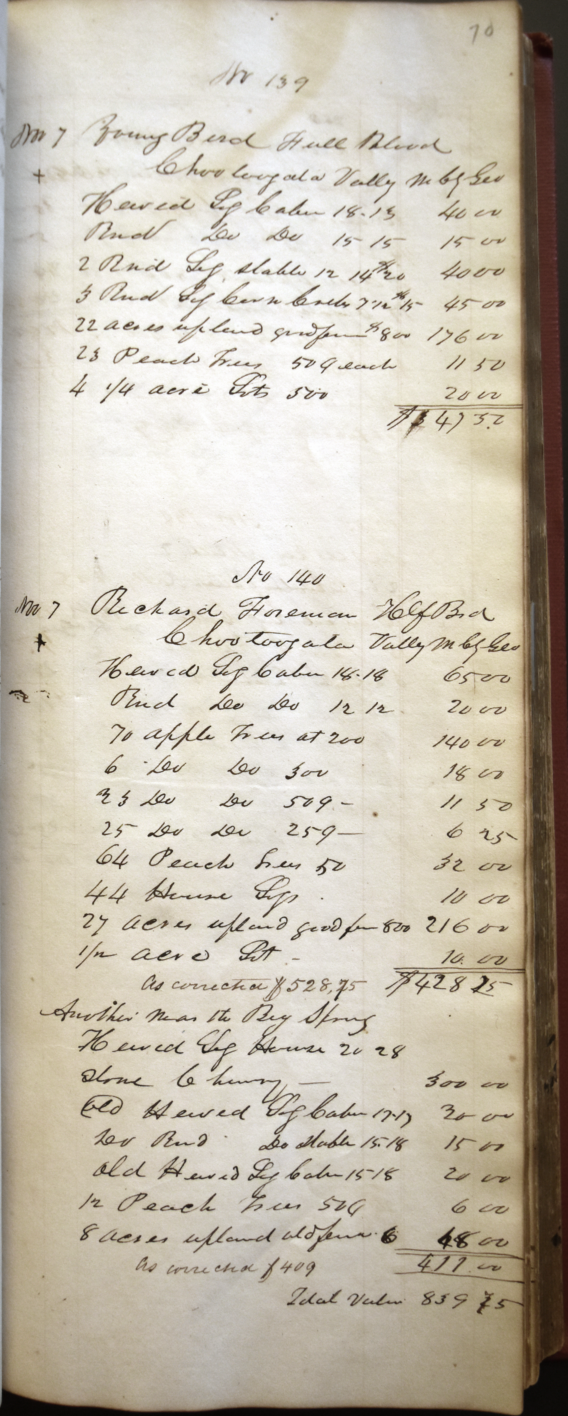 70
No 139
Nov 7 Young Bird Full Blood
+ Chootoogala Vally M Cy Geo
Hewed Log Cabin 18-18 40 00
Rnd Do Do 15 15 15 00
2 Rnd Log stable 12 14 $20 40 00
3 Rnd Log Corn Cribs 7-12 $15 45 00
22 acres upland good fence $800 176 00
23 Peach Trees 50¢ each 11 50
4 1/4 acre Lots 500 20 00
$347 50
No 140
Nov 7 Richard Foreman Hlf Brd
+ Chootoogala Vally M Cy Geo
Hewed Log Cabin 18-18 65 00
Rnd Do Do 12 12 20 00
70 apple Trees at 200 140 00
6 Do Do 300 18 00
23 Do Do 50¢ - 11 50
25 Do Do 25¢ - 6 25
64 Peach Trees 50 32 00
44 House Logs 10 00
27 acres upland good fen 800 216 00
1/2 acre Lot - 10 00
As corrected $528,75 $428 75
Another near the Big Spring
Hewed Log House 20 28
stone Chimny - 300 00
Old Hewed Log Cabin 17-17 20 00
Do Rnd Do stable 15-18 15 00
old Hewed Log Cabin 15 18 20 00
12 Peach Trees 50¢ 6 00
8 acres upland old fence 6 48 00
As corrected $409 411.00
Total Value 839 75